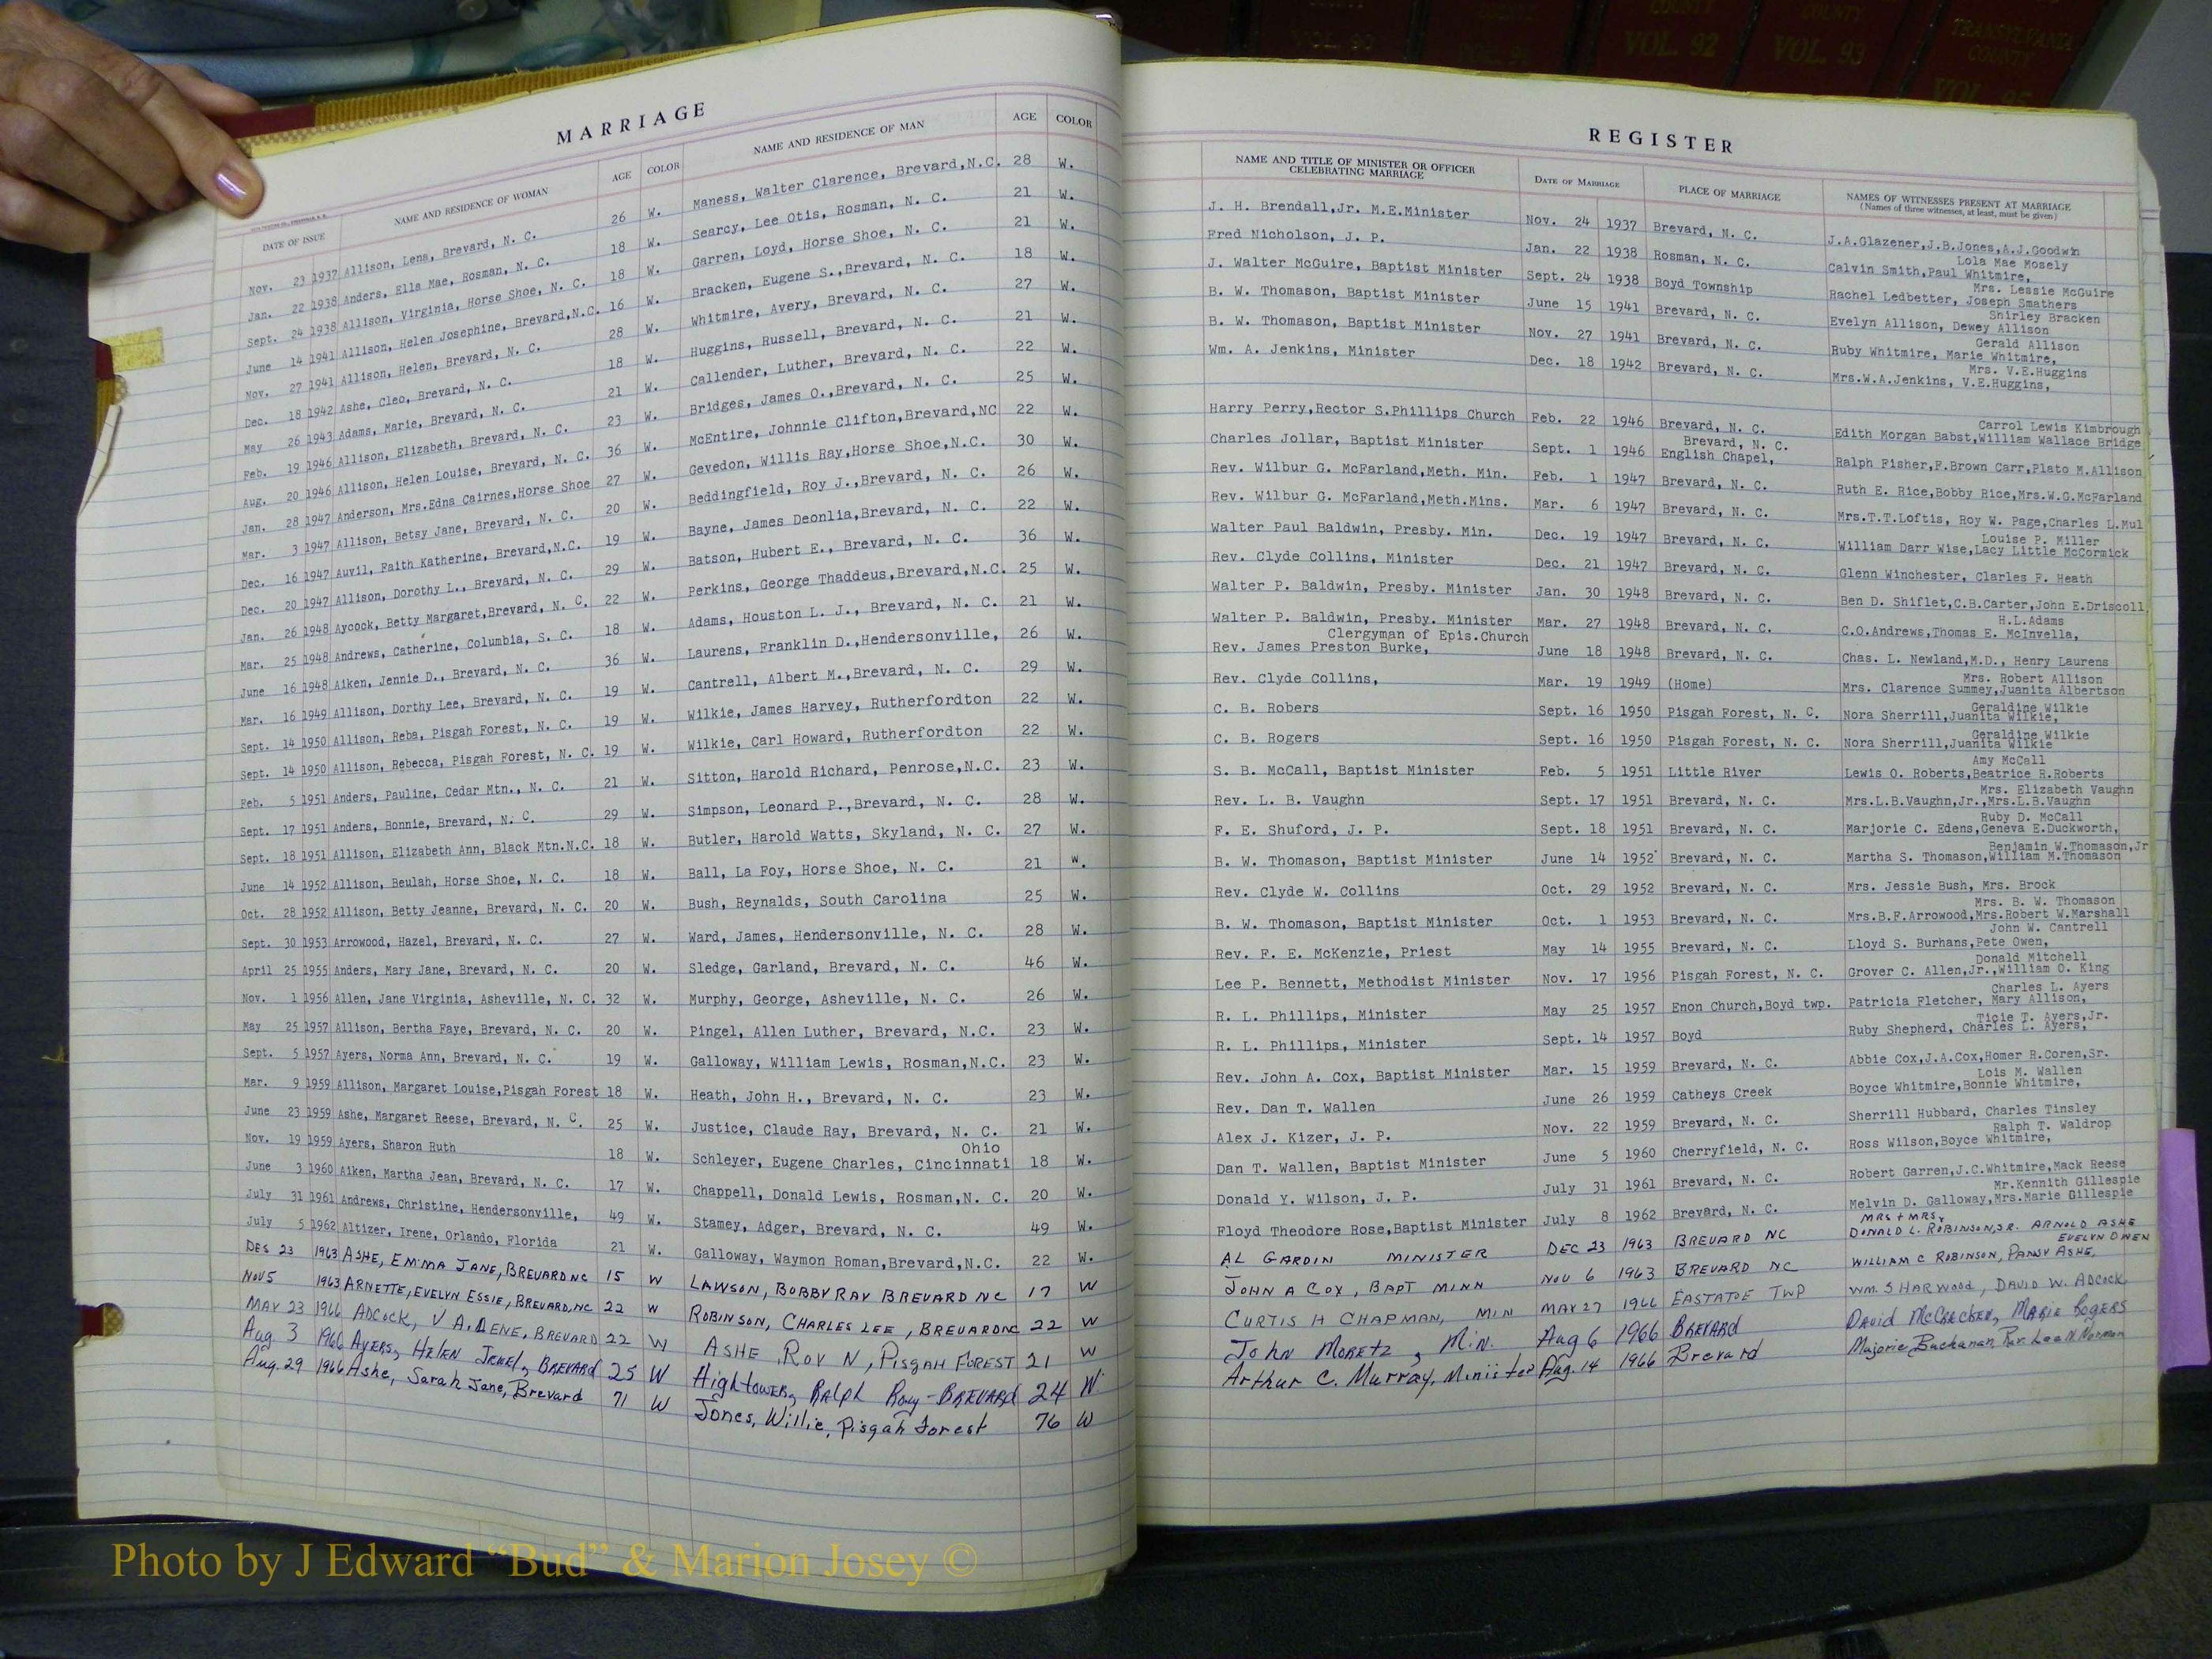 COUNTY
COUNTY
TRANSYLVANIA
COUNTY
VOL. 92
VOL. 93
MARRIAGE
DATE OF ISSUE NAME AND RESIDENCE OF WOMAN AGE COLOR NAME AND RESIDENCE OF MAN AGE COLOR
Nov. 23 1937 Allison, Lena, Brevard, N. C. 26 W. Maness, Walter Clarence, Brevard,N.C. 28 W.
Jan. 22 1938 Anders, Ella Mae, Rosman, N. C. 18 W. Searcy, Lee Otis, Rosman, N. C. 21 W.
Sept. 24 1938 Allison, Virginia, Horse Shoe, N. C. 18 W. Garren, Loyd, Horse Shoe, N. C. 21 W.
June 14 1941 Allison, Helen Josephine, Brevard,N.C. 16 W. Bracken, Eugene S.,Brevard, N. C. 18 W.
Nov. 27 1941 Allison, Helen, Brevard, N. C. 28 W. Whitmire, Avery, Brevard, N. C. 27 W.
Dec. 18 1942 Ashe, Cleo, Brevard, N. C. 18 W. Huggins, Russell, Brevard, N. C. 21 W.
May 26 1943 Adams, Marie, Brevard, N. C. 21 W. Callender, Luther, Brevard, N. C. 22 W.
Feb. 19 1946 Allison, Elizabeth, Brevard, N. C. 23 W. Bridges, James O.,Brevard, N. C. 25 W.
Aug. 20 1946 Allison, Helen Louise, Brevard, N. C. 36 W. McEntire, Johnnie Clifton,Brevard,NC 22 W.
Jan. 28 1947 Anderson, Mrs.Edna Cairnes,Horse Shoe 27 W. Gevedon, Willis Ray,Horse Shoe,N.C. 30 W.
Mar. 3 1947 Allison, Betsy Jane, Brevard, N. C. 20 W. Beddingfield, Roy J.,Brevard, N. C. 26 W.
Dec. 16 1947 Auvil, Faith Katherine, Brevard,N.C. 19 W. Bayne, James Deonlia,Brevard, N. C. 22 W.
Dec. 20 1947 Allison, Dorothy L., Brevard, N. C. 29 W. Batson, Hubert E., Brevard, N. C. 36 W.
Jan. 26 1948 Aycock, Betty Margaret,Brevard, N. C. 22 W. Perkins, George Thaddeus,Brevard,N.C. 25 W.
Mar. 25 1948 Andrews, Catherine, Columbia, S. C. 18 W. Adams, Houston L. J., Brevard, N. C. 21 W.
June 16 1948 Aiken, Jennie D., Brevard, N. C. 36 W. Laurens, Franklin D.,Hendersonville, 26 W.
Mar. 16 1949 Allison, Dorthy Lee, Brevard, N. C. 19 W. Cantrell, Albert M.,Brevard, N. C. 29 W.
Sept. 14 1950 Allison, Reba, Pisgah Forest, N. C. 19 W. Wilkie, James Harvey, Rutherfordton 22 W.
Sept. 14 1950 Allison, Rebecca, Pisgah Forest, N. C. 19 W. Wilkie, Carl Howard, Rutherfordton 22 W.
Feb. 5 1951 Anders, Pauline, Cedar Mtn., N. C. 21 W. Sitton, Harold Richard, Penrose,N.C. 23 W.
Sept. 17 1951 Anders, Bonnie, Brevard, N. C. 29 W. Simpson, Leonard P.,Brevard, N. C. 28 W.
Sept. 18 1951 Allison, Elizabeth Ann, Black Mtn.N.C. 18 W. Butler, Harold Watts, Skyland, N. C. 27 W.
June 14 1952 Allison, Beulah, Horse Shoe, N. C. 18 W. Ball, La Foy, Horse Shoe, N. C. 21 W.
Oct. 28 1952 Allison, Betty Jeanne, Brevard, N. C. 20 W. Bush, Reynalds, South Carolina 25 W.
Sept. 30 1953 Arrowood, Hazel, Brevard, N. C. 27 W. Ward, James, Hendersonville, N. C. 28 W.
April 25 1955 Anders, Mary Jane, Brevard, N. C. 20 W. Sledge, Garland, Brevard, N. C. 46 W.
Nov. 1 1956 Allen, Jane Virginia, Asheville, N. C. 32 W. Murphy, George, Asheville, N. C. 26 W.
May 25 1957 Allison, Bertha Faye, Brevard, N. C. 20 W. Pingel, Allen Luther, Brevard, N.C. 23 W.
Sept. 5 1957 Ayers, Norma Ann, Brevard, N. C. 19 W. Galloway, William Lewis, Rosman,N.C. 23 W.
Mar. 9 1959 Allison, Margaret Louise,Pisgah Forest 18 W. Heath, John H., Brevard, N. C. 23 W.
June 23 1959 Ashe, Margaret Reese, Brevard, N. C. 25 W. Justice, Claude Ray, Brevard, N. C. 21 W.
Ohio
Nov. 19 1959 Ayers, Sharon Ruth 18 W. Schleyer, Eugene Charles, Cincinnati 18 W.
June 3 1960 Aiken, Martha Jean, Brevard, N. C. 17 W. Chappell, Donald Lewis, Rosman,N. C. 20 W.
July 31 1961 Andrews, Christine, Hendersonville, 49 W. Stamey, Adger, Brevard, N. C. 49 W.
July 5 1962 Altizer, Irene, Orlando, Florida 21 W. Galloway, Waymon Roman,Brevard,N.C. 22 W.
DES 23 1963 ASHE, EMMA JANE, BREVARD NC 15 W LAWSON, BOBBY RAY BREVARD NC 17 W
NOV 5 1963 ARNETTE, EVELYN ESSIE, BREVARD,NC 22 W ROBINSON, CHARLES LEE, BREVARD NC 22 W
MAY 23 1966 ADCOCK, V A.DENE, BREVARD 22 W ASHE, ROY N, PISGAH FOREST 21 W
Aug. 3 1966 AYERS, HELEN JEWEL, BREVARD 25 W Hightower, Ralph Roy - BREVARD 24 W
Aug. 29 1966 Ashe, Sarah Jane, Brevard 71 W Jones, Willie, Pisgah Forest 76 W
REGISTER
NAME AND TITLE OF MINISTER OR OFFICER CELEBRATING MARRIAGE DATE OF MARRIAGE PLACE OF MARRIAGE NAMES OF WITNESSES PRESENT AT MARRIAGE
(Names of three witnesses, at least, must be given)
J. H. Brendall,Jr. M.E.Minister Nov. 24 1937 Brevard, N. C. J.A.Glazener,J.B.Jones,A.J.Goodwin
Lola Mae Mosely
Fred Nicholson, J. P. Jan. 22 1938 Rosman, N. C. Calvin Smith,Paul Whitmire,
Mrs. Lessie McGuire
J. Walter McGuire, Baptist Minister Sept. 24 1938 Boyd Township Rachel Ledbetter, Joseph Smathers
Shirley Bracken
B. W. Thomason, Baptist Minister June 15 1941 Brevard, N. C. Evelyn Allison, Dewey Allison
Gerald Allison
B. W. Thomason, Baptist Minister Nov. 27 1941 Brevard, N. C. Ruby Whitmire, Marie Whitmire,
Mrs. V.E.Huggins
Wm. A. Jenkins, Minister Dec. 18 1942 Brevard, N. C. Mrs.W.A.Jenkins, V.E.Huggins,
Carrol Lewis Kimbrough
Harry Perry,Rector S.Phillips Church Feb. 22 1946 Brevard, N. C. Edith Morgan Babst,William Wallace Bridge
Brevard, N. C.
Charles Jollar, Baptist Minister Sept. 1 1946 English Chapel, Ralph Fisher,F.Brown Carr,Plato M.Allison
Rev. Wilbur G. McFarland,Meth. Min. Feb. 1 1947 Brevard, N. C. Ruth E. Rice,Bobby Rice,Mrs.W.G.McFarland
Rev. Wilbur G. McFarland,Meth.Mins. Mar. 6 1947 Brevard, N. C. Mrs.T.T.Loftis, Roy W. Page,Charles L.Mul
Louise P. Miller
Walter Paul Baldwin, Presby. Min. Dec. 19 1947 Brevard, N. C. William Darr Wise,Lacy Little McCormick
Rev. Clyde Collins, Minister Dec. 21 1947 Brevard, N. C. Glenn Winchester, Clarles F. Heath
Walter P. Baldwin, Presby. Minister Jan. 30 1948 Brevard, N. C. Ben D. Shiflet,C.B.Carter,John E.Driscoll,
H.L.Adams
Walter P. Baldwin, Presby. Minister Mar. 27 1948 Brevard, N. C. C.O.Andrews,Thomas E. McInvella,
Clergyman of Epis.Church
Rev. James Preston Burke, June 18 1948 Brevard, N. C. Chas. L. Newland,M.D., Henry Laurens
Mrs. Robert Allison
Rev. Clyde Collins, Mar. 19 1949 (Home) Mrs. Clarence Summey,Juanita Albertson
Geraldine Wilkie
C. B. Robers Sept. 16 1950 Pisgah Forest, N. C. Nora Sherrill,Juanita Wilkie,
Geraldine Wilkie
C. B. Rogers Sept. 16 1950 Pisgah Forest, N. C. Nora Sherrill,Juanita Wilkie
Amy McCall
S. B. McCall, Baptist Minister Feb. 5 1951 Little River Lewis O. Roberts,Beatrice R.Roberts
Mrs. Elizabeth Vaughn
Rev. L. B. Vaughn Sept. 17 1951 Brevard, N. C. Mrs.L.B.Vaughn,Jr.,Mrs.L.B.Vaughn
Ruby D. McCall
F. E. Shuford, J. P. Sept. 18 1951 Brevard, N. C. Marjorie C. Edens,Geneva E.Duckworth,
Benjamin W.Thomason,Jr
B. W. Thomason, Baptist Minister June 14 1952 Brevard, N. C. Martha S. Thomason,William M.Thomason
Rev. Clyde W. Collins Oct. 29 1952 Brevard, N. C. Mrs. Jessie Bush, Mrs. Brock
Mrs. B. W. Thomason
B. W. Thomason, Baptist Minister Oct. 1 1953 Brevard, N. C. Mrs.B.F.Arrowood,Mrs.Robert W.Marshall
John W. Cantrell
Rev. F. E. McKenzie, Priest May 14 1955 Brevard, N. C. Lloyd S. Burhans,Pete Owen,
Donald Mitchell
Lee P. Bennett, Methodist Minister Nov. 17 1956 Pisgah Forest, N. C. Grover C. Allen,Jr.,William O. King
Charles L. Ayers
R. L. Phillips, Minister May 25 1957 Enon Church,Boyd twp. Patricia Fletcher, Mary Allison,
Ticie T. Ayers,Jr.
R. L. Phillips, Minister Sept. 14 1957 Boyd Ruby Shepherd, Charles L. Ayers,
Rev. John A. Cox, Baptist Minister Mar. 15 1959 Brevard, N. C. Abbie Cox,J.A.Cox,Homer R.Coren,Sr.
Lois M. Wallen
Rev. Dan T. Wallen June 26 1959 Catheys Creek Boyce Whitmire,Bonnie Whitmire,
Alex J. Kizer, J. P. Nov. 22 1959 Brevard, N. C. Sherrill Hubbard, Charles Tinsley
Ralph T. Waldrop
Dan T. Wallen, Baptist Minister June 5 1960 Cherryfield, N. C. Ross Wilson,Boyce Whitmire,
Donald Y. Wilson, J. P. July 31 1961 Brevard, N. C. Robert Garren,J.C.Whitmire,Mack Reese
Mr.Kennith Gillespie
Floyd Theodore Rose,Baptist Minister July 8 1962 Brevard, N. C. Melvin D. Galloway,Mrs.Marie Gillespie
MRS + MRS,
AL GARDIN MINISTER DEC 23 1963 BREVARD NC DONALD L. ROBINSON,SR. ARNOLD ASHE
EVELYN OWEN
JOHN A COX, BAPT MINN NOV 6 1963 BREVARD NC WILLIAM C ROBINSON, PANSY ASHE,
CURTIS H CHAPMAN, MIN MAY 27 1966 EASTATOE TWP WM. S HARWOOD, DAVID W. ADCOCK,
John Moretz, Min. Aug 6 1966 BREVARD David McCracken, Marie Rogers
Arthur C. Murray, Minister Aug. 14 1966 Brevard Marjorie Buchanan, Rev. Lee N Norman
Photo by J Edward “Bud” & Marion Josey ©